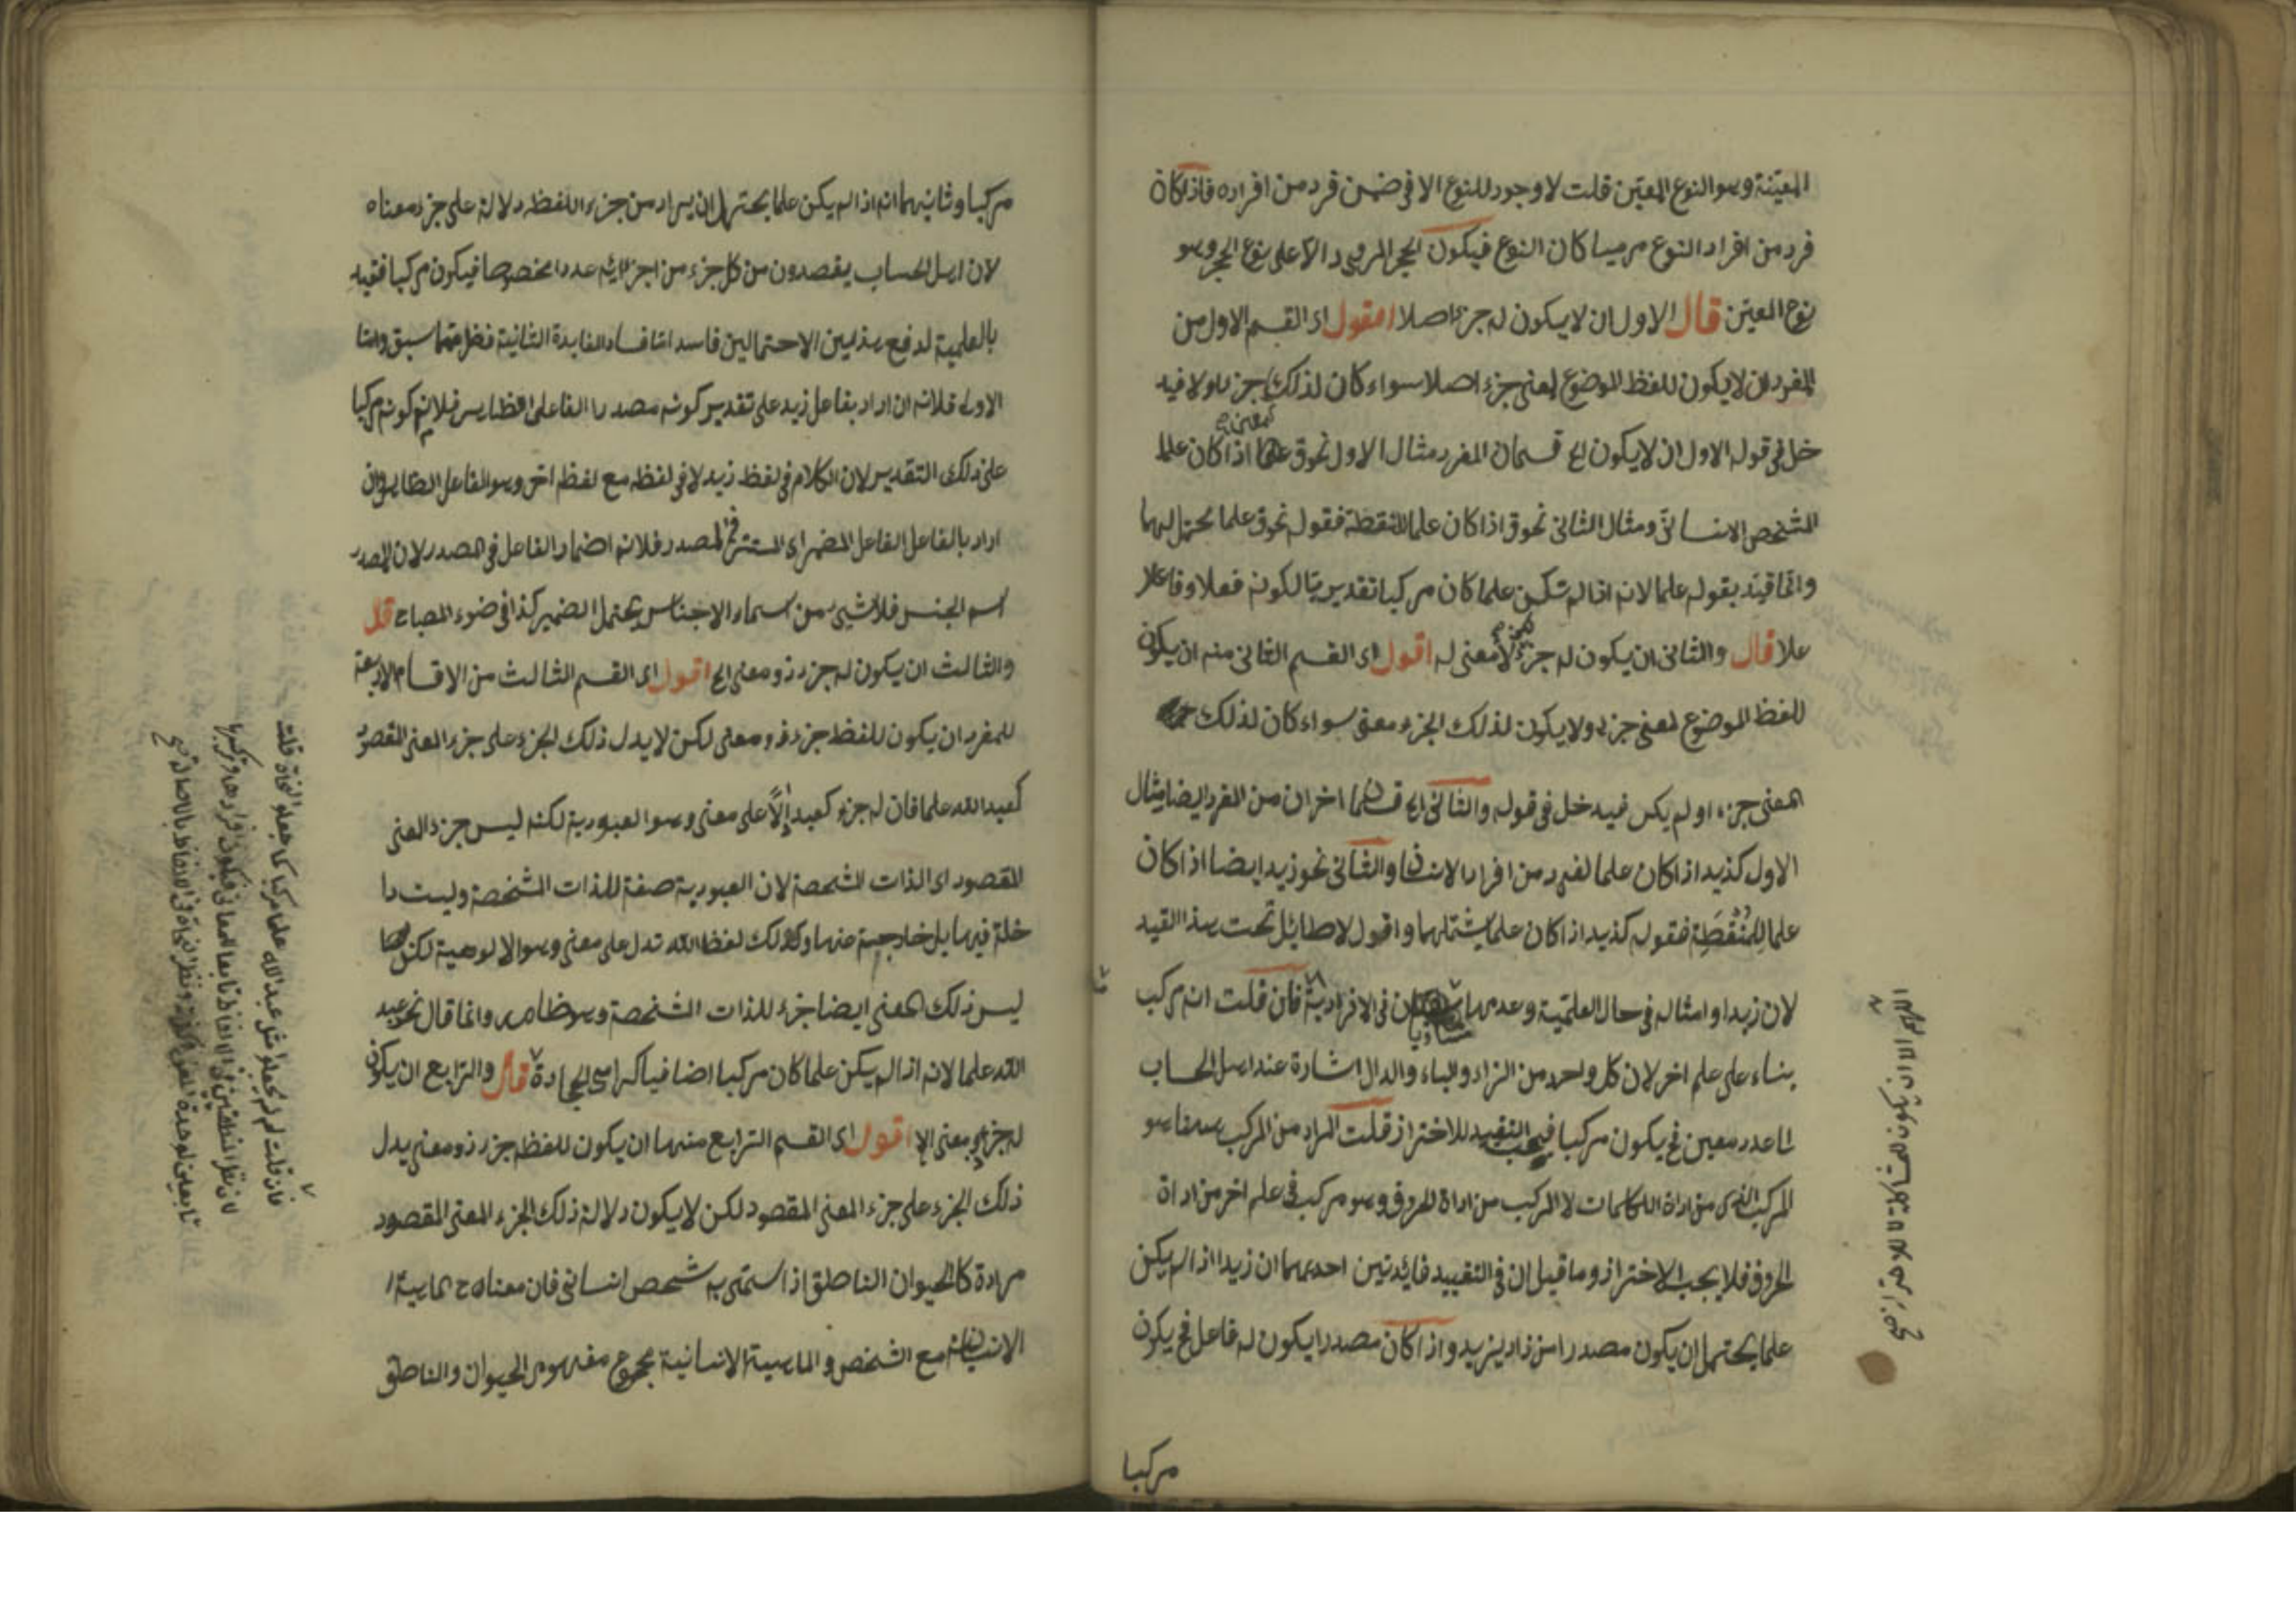 المعيّنة وهو النوع المعيّن قلت لا وجود للنوع الا فى ضمن فرد من افراده فاذا كان
فرد من افراد النوع مرميا كان النوع فيكون الحجر المرمى دالا على نوع الحجر وهو
نوع المعيّن قال الاول ان لا يكون له جزء اصلا اقول اى القسم الاول من
المفرد ان لا يكون للفظ الموضوع لمعنى جزء اصلا سواء كان لذلك جزء او لا فيد
خل فى قوله الاول ان لا يكون الخ قسمان المفرد مثال الاول نحو ق علما اذا كان علما
للشخص الانسانىّ ومثال الثانى نحو ق اذا كان علما للنقطة فقوله نحو ق علما يحتمل لهما
وانما قيّد بقوله علما لانه اذا لم يكن علما كان مركبا تقديريّا لكونه فعلا وفاعلا
علا قال والثانى ان يكون له جزء لا معنى له اقول اى القسم الثانى منه ان يكون
للفظ الموضوع لمعنى جزء ولا يكون لذلك الجزء معنى سواء كان لذلك
المعنى جزء او لم يكن فيدخل فى قوله والثانى الخ قسمان اخران من المفرد ايضا مثال
الاول كذيد اذا كان علما لفرد من افراد الانسان والثانى نحو زيد ايضا اذا كان
علما للنُقْطَةِ فقوله كذيد اذا كان علما يشتملهما واقول لا طايل تحت هذا القيد
لان زيدا وامثاله فى حال العلميّة وعدمها فى الافرادية فان قلت انه مركب
بناء على علم اخر لان كل واحد من الزاء والياء والدال اشارة عند اهل الحساب
الى عدد معين فح يكون مركبا فيجب التقييد للاحتراز قلت المراد من المركب ههنا هو
المركب الذى من اداة الكلمات لا المركب من اداة الحروف وهو مركب فى علم اخر من اداة
الحروف فلا يجب الاحتراز وما قيل ان فى التقييد فائدتين احديهما ان زيدا اذا لم يكن
علما يحتمل ان يكون مصدرا من زاد يزيد واذا كان مصدرا يكون له فاعل فح يكون
مركبا
مركبا وثانيهما انه اذا لم يكن علما يحتمل ان يراد من جزء اللفظ دلالة على جزء معناه
لان اهل الحساب يقصدون من كل جزء من اجزائه عددا مخصوصا فيكون مركبا فقيد
بالعلمية لدفع هذين الاحتمالين فاسد اما فساد الفايدة الثانية فظ مما سبق واما
الاولى فلانه ان اراد بفاعل زيد على تقدير كونه مصدرا الفاعل الظاهر فلانم كونه مركبا
على ذلك التقدير لان الكلام فى لفظ زيد لا فى لفظه مع لفظ اخر وهو الفاعل الظاهر وان
اراد بالفاعل الفاعل المضمر اى المستتر فى المصدر فلانم اضمار الفاعل فى المصدر لان المصدر
اسم الجنس فلا شيئ من اسماء الاجناس يحتمل الضمير كذا فى ضوء المصباح قال
والثالث ان يكون له جزء ذو معنى الخ اقول اى القسم الثالث من الاقسام الاربعة
للمفرد ان يكون للفظ جزء ذو معنى لكن لا يدل ذلك الجزء على جزء المعنى المقصود
كعبد الله علما فان له جزء كعبد دالّا على معنى وهو العبودية لكنه ليس جزء المعنى
المقصود اى الذات المشخصة لان العبودية صفة للذات المشخصة وليست دا
خلة فيها بل خارجية عنها وكذلك لفظ الله تدل على معنى وهو الالوهية لكن
ليس ذلك المعنى ايضا جزء للذات المشخصة وهو ظاهر وانما قال نحو عبد
الله علما لانه اذا لم يكن علما كان مركبا اضافيا كرامى الحجارة قال والرابع ان يكون
له جزء ذو معنى الخ اقول اى القسم الرابع منها ان يكون للفظ جزء ذو معنى يدل
ذلك الجزء على جزء المعنى المقصود لكن لا يكون دلالة ذلك الجزء المعنى المقصود
مرادة كالحيوان الناطق اذا سمّى به شخص انسانى فان معناه ح الماهية ا
الانسانية مع الشخص والماهية الانسانية مجموع مفهوم الحيوان والناطق